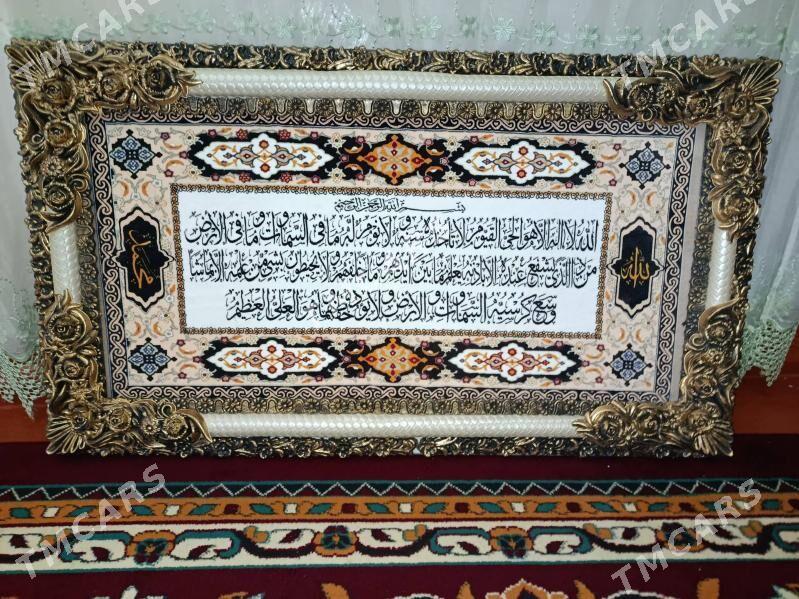 بسم الله الرحمن الرحيم
الله لا اله الا هو الحي القيوم لا تاخذه سنة ولا نوم له ما في السماوات وما في الارض
من ذا الذي يشفع عنده الا باذنه يعلم ما بين ايديهم وما خلفهم ولا يحيطون بشيء من علمه الا بما شاء
وسع كرسيه السماوات والارض ولا يؤده حفظهما وهو العلي العظيم
الله
محمد
TMCARS
TMCARS
TMCARS
TMCARS
TMCARS
TMCARS